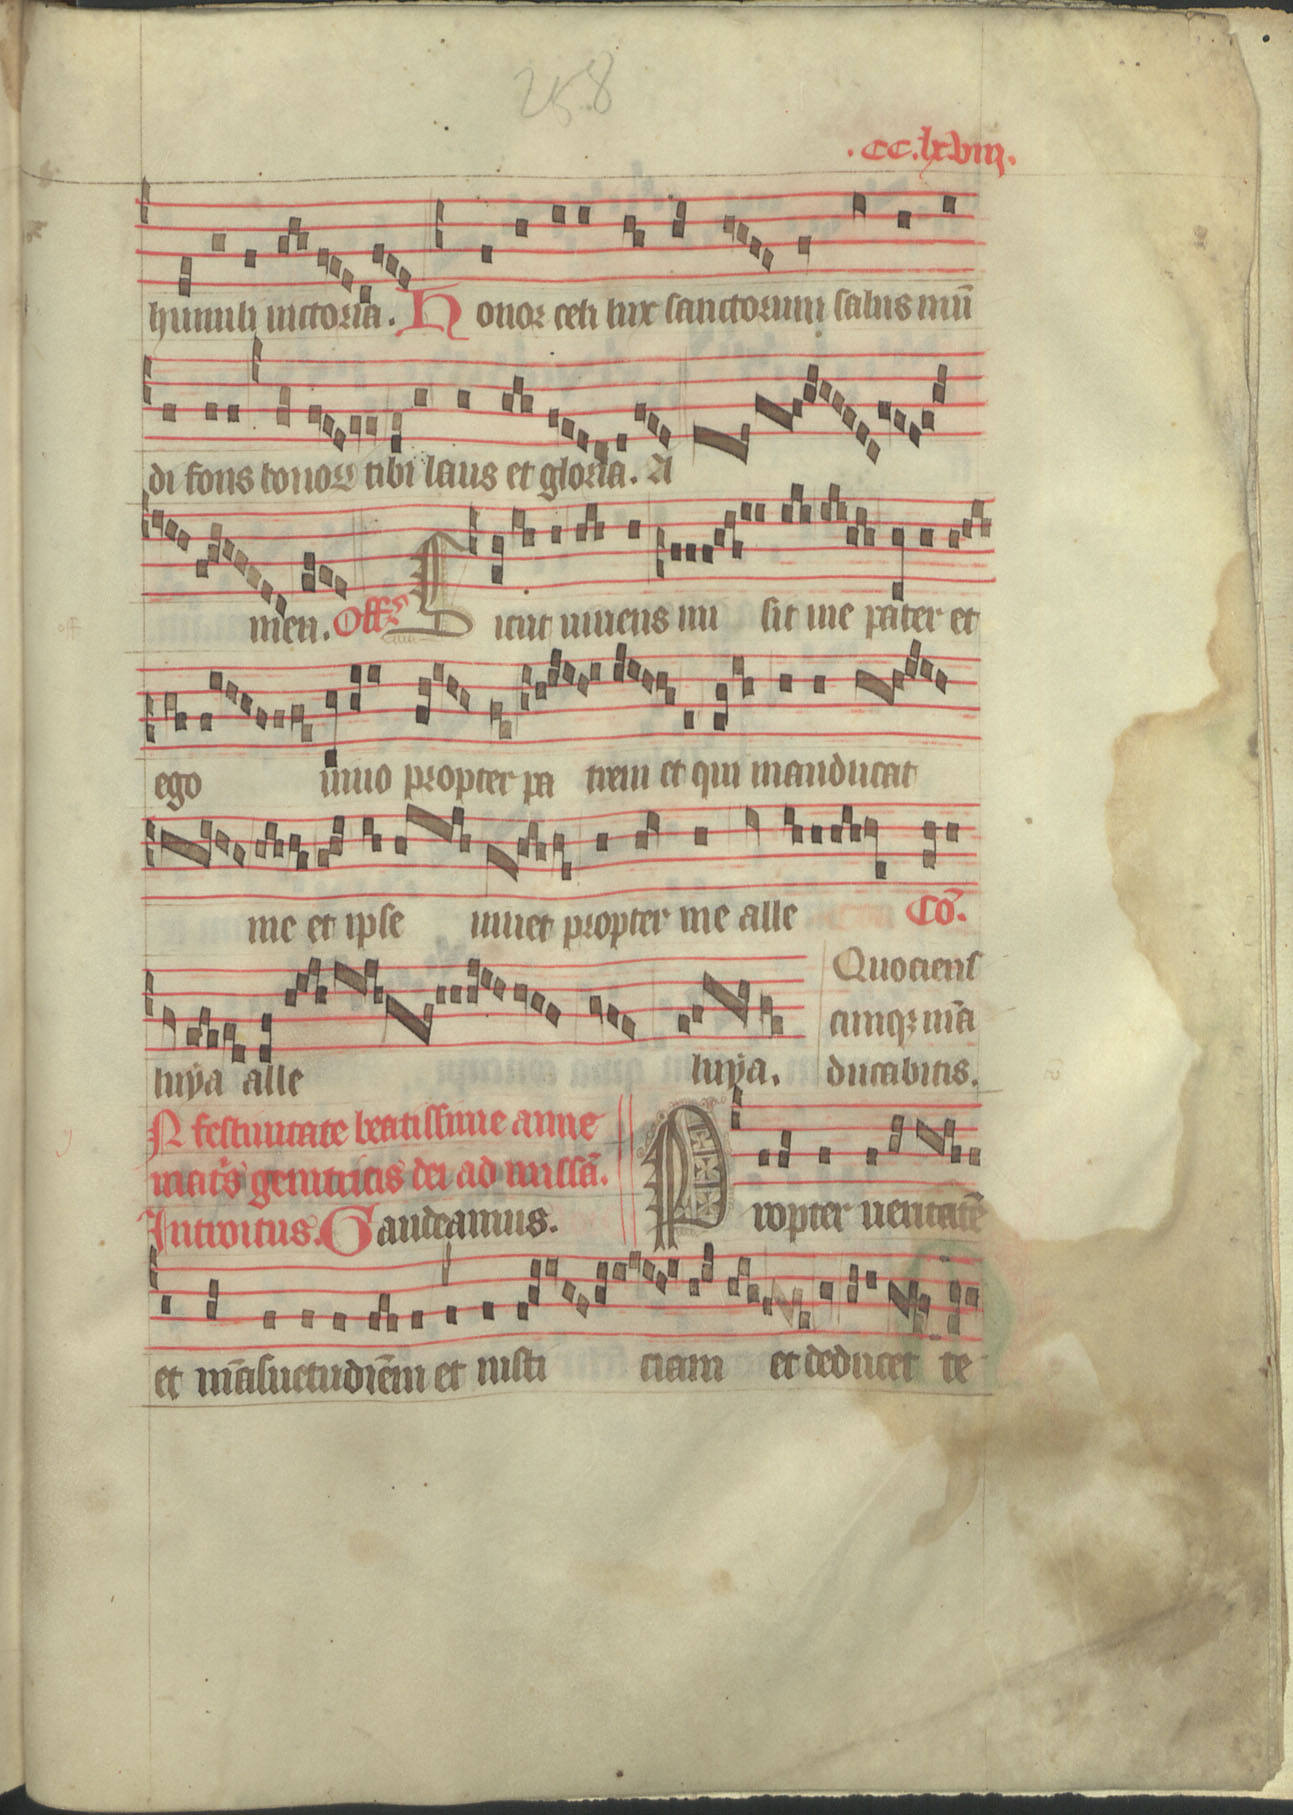 258
.CC.lxviij.
humili uictoria. Honor celi lux sanctorum salus mū
di fons bonoꝝ tibi laus et gloria. A
men. Off. Sicut uiuens mi sit me pater et
ego uiuo propter pa trem et qui manducat
me et ipse uiuet propter me alle Cō.
Quociens
cumqꝫ mā
luya alle luya. ducabitis.
N festiuitate beatissime anne
mat's genitricis dei ad missā.
Introitus. Gaudeamus. Propter ueritatē
et māsuetudiēm et iusti ciam et deducet te